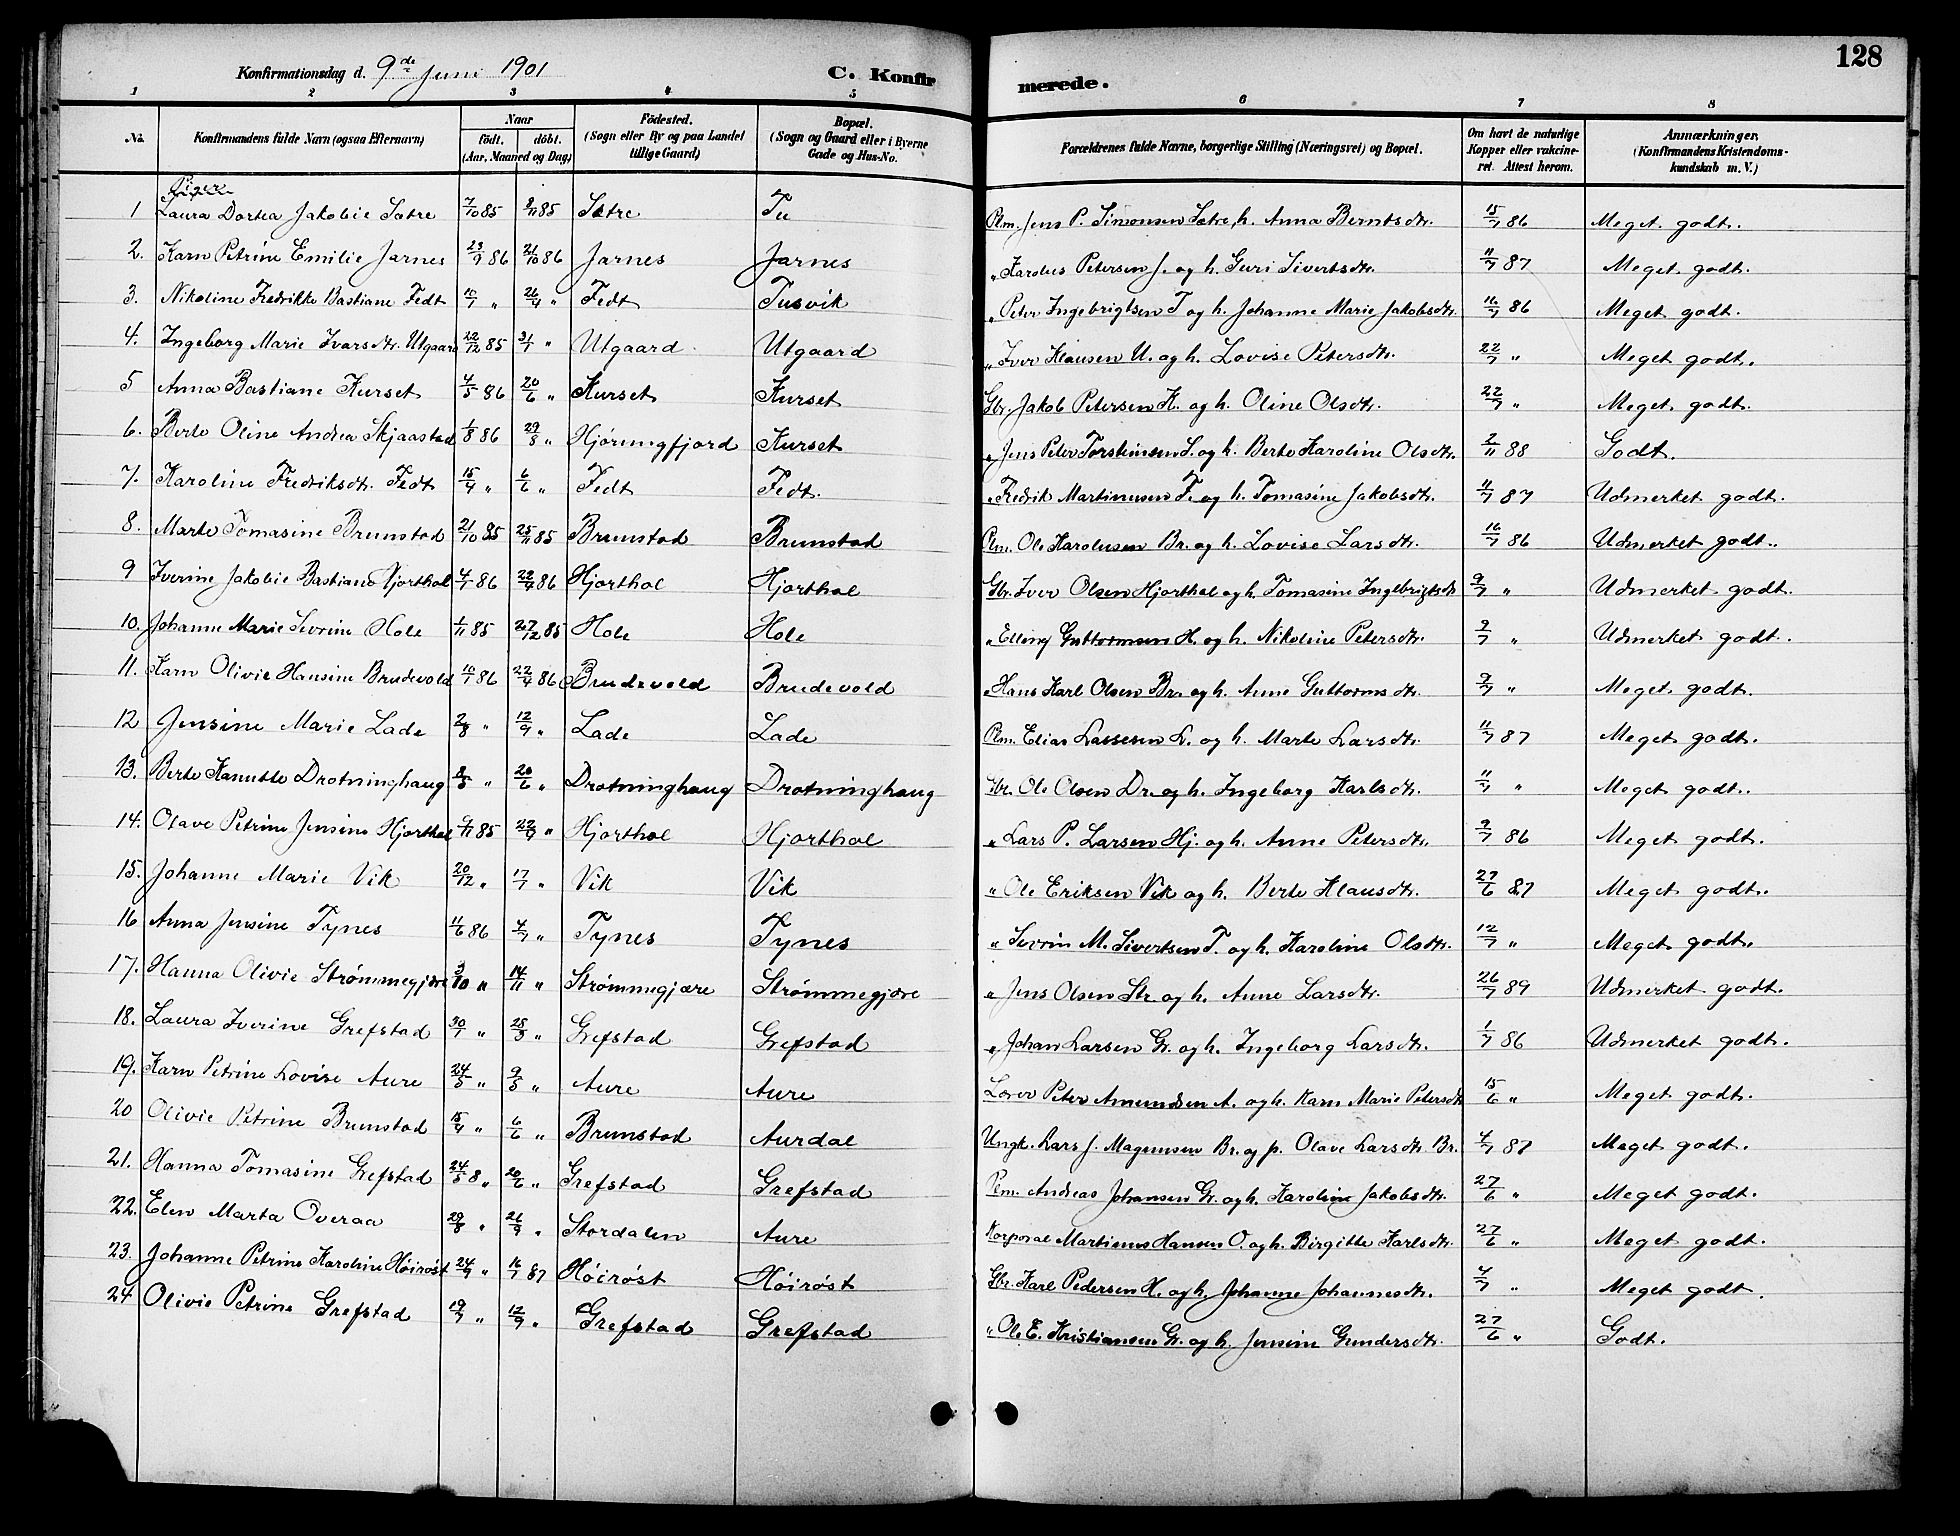 128
Konfirmationsdag d. 9de Juni 1901 C. Konfir merede.
1 2 3 4 5 6 7 8
No. Konfirmandens fulde Navn (ogsaa Efternavn) Naar født. døbt. (Aar, Maaned og Dag) Fødested. (Sogn eller By og paa Landet tillige Gaard) Bopæl. (Sogn og Gaard eller i Byerne Gade og Hus-No. Forældrenes fulde Navne, borgerlige Stilling (Næringsvei) og Bopæl. Om havt de naturlige Kopper eller vakcineret. Attest herom. Anmærkninger. (Konfirmandens Kristendomskundskab m. V.)
Piger
1 Laura Dortea Jakobie Sætre 7/10 85 8/11 85 Sætre Tu Plm. Jens P. Simonsen Sætre, h. Anna Berntsdtr. 15/7 86 Meget godt.
2. Karn Petrine Emilie Jarnes 23/9 86 21/10 86 Jarnes Jarnes " Karolus Petersen J. og h. Guri Sivertsdtr. 11/7 87 Meget godt.
3. Nikoline Fredrikke Bastiane Fedt 10/1 " 26/4 " Fedt Tusvik " Peter Ingebrigtsen T og h. Johanne Marie Jakobsdtr. 16/7 86 Meget godt.
4. Ingeborg Marie Ivarsdtr. Utgaard 22/12 85 31/1 " Utgaard Utgaard " Iver Klausen U. og h. Lovise Petersdtr. 22/7 " Meget godt.
5 Anna Bastiane Kurset 4/5 86 20/6 " Kurset Kurset Gbr. Jakob Petersen K. og h. Oline Olsdtr. 22/7 " Meget godt.
6. Berte Oline Andrea Skjaastad 1/8 86 29/8 " Hjørungfjord Kurset " Jens Peter Torsteinsen S. og h. Berte Karoline Olsdtr. 2/11 88 Godt.
7. Karoline Fredriksdtr. Fedt 15/4 " 6/6 " Fedt Fedt. " Fredrik Martinusen F. og h. Tomasine Jakobsdtr. 11/7 87 Udmerket godt.
8. Marte Tomasine Brunstad 21/10 85 25/11 85 Brunstad Brunstad Plm. Ole Karolusen Br. og h. Lovise Larsdtr. 16/7 86 Udmerket godt.
9 Iverine Jakobie Bastiane Hjorthol 4/1 86 22/4 86 Hjorthol Hjorthol Gbr. Iver Olsen Hjorthol og h. Tomasine Ingebrigtsdtr 9/7 " Udmerket godt.
10. Johanne Marie Severine Hole 1/11 85 27/12 85 Hole Hole " Elling Guttormsen H. og h. Nikoline Petersdtr. 9/7 " Udmerket godt.
11. Karn Olivie Hansine Brudevold 10/1 86 22/4 86 Brudevold Brudevold " Hans Karl Olsen Br. og h. Anne Guttormsdtr. 9/7 " Meget godt.
12 Jensine Marie Lade 2/8 " 12/9 " Lade Lade Plm. Elias Lassesen L. og h. Marte Larsdtr. 11/7 87 Meget godt.
13. Berte Kanutte Drotninghaug 8/5 " 20/6 " Drotninghaug Drotninghaug Gbr. Ole Olsen Dr. og h. Ingeborg Karlsdtr. 11/7 " Meget godt.
14. Olave Petrine Jensine Hjorthol 9/11 85 22/4 " Hjorthol Hjorthol " Lars P. Larsen Hj. og h. Anne Petersdtr. 9/7 86 Meget godt.
15. Johanne Marie Vik 20/12 " 17/1 " Vik Vik " Ole Eriksen Vik og h. Berte Klausdtr. 27/6 87 Meget godt.
16 Anna Jensine Tynes 11/6 86 4/7 " Tynes Tynes " Severin M. Sivertsen T. og h. Karoline Olsdtr. 12/7 " Meget godt.
17. Hanna Olivie Strømmegjære 3/10 " 14/11 " Strømmegjære Strømmegjære " Jens Olsen Str. og h. Anne Larsdtr. 26/7 89 Udmerket godt.
18. Laura Iverine Grefstad 30/1 " 28/3 " Grefstad Grefstad " Johan Larsen Gr. og h. Ingeborg Larsdtr. 1/7 86 Udmerket godt.
19. Karn Petrine Lovise Aure 24/3 " 9/5 " Aure Aure Lærer Peter Amundsen A. og h. Karn Marie Petersdtr 15/6 " Meget godt.
20 Olivie Petrine Brunstad 15/4 " 6/6 " Brunstad Aurdal Ungk. Lars J. Magnusen Br. og p. Olave Larsdtr. Br. 4/7 87 Meget godt.
21. Hanna Tomasine Grefstad 24/5 8 " 20/6 " Grefstad Grefstad Plm. Andreas Johansen Gr. og h. Karoline Jakobsdtr. 27/6 " Meget godt.
22. Elen Marta Overaa 29/8 " 26/9 " Stordalen Aure Korporal Martinus Hansen O. og h. Birgitte Karlsdtr. 27/6 " Meget godt.
23. Johanne Petrine Karoline Høirøst 24/9 " 16/1 87 Høirøst Høirøst Gbr. Karl Pedersen H. og h. Johanne Johannesdtr. 4/7 " Meget godt.
24 Olivie Petrine Grefstad 19/7 " 12/9 " Grefstad Grefstad " Ole E. Kristiansen Gr. og h. Jensine Gundersdtr. 27/6 " Godt.